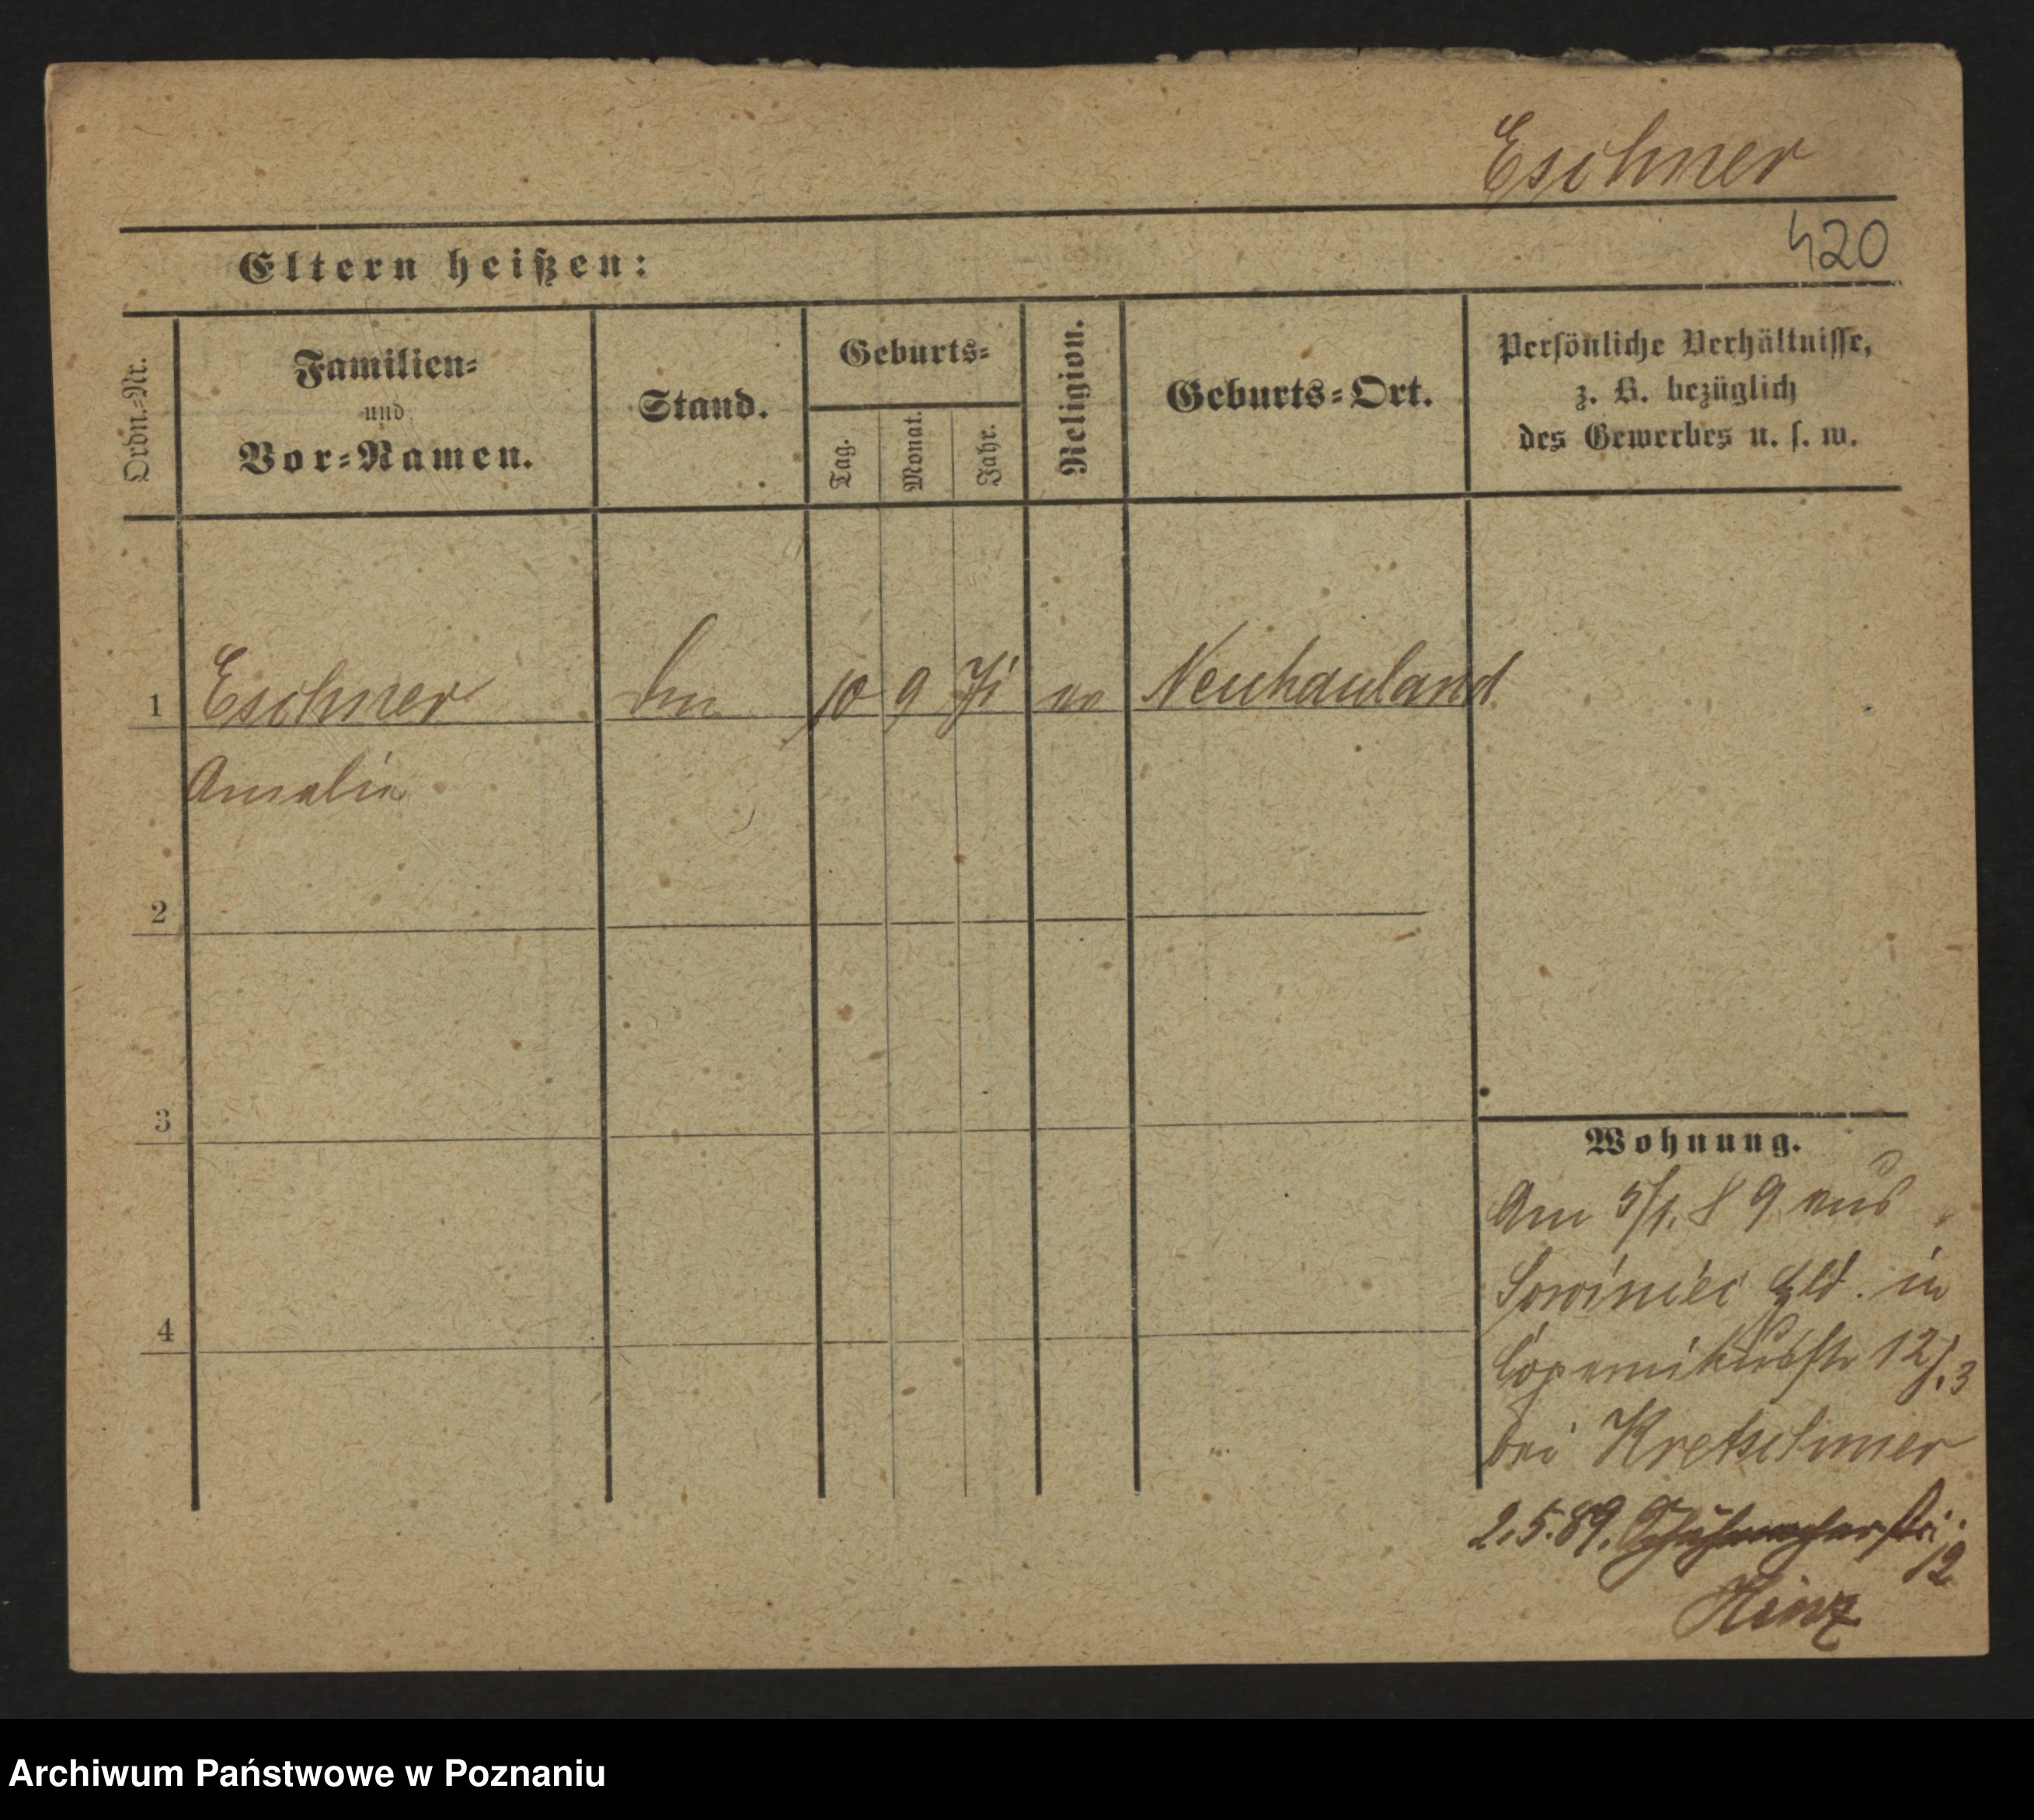 Eschner
420
Eltern heißen:
Ordn.-Nr.
Familien-
und
Vor-Namen.
Stand.
Geburts-
Tag.
Monat.
Jahr.
Religion.
Geburts-Ort.
Persönliche Verhältnisse,
z. B. bezüglich
des Gewerbes u. s. w.
1 Eschner 10 9 Neuhauland
Amalie
2
3
4
Wohnung.
Am 5/1. 89 aus
Sowiniec Hld. in
Copernikusstr 12/.3
bei Kretschmer
2.5.89.
12
Hinz
Archiwum Państwowe w Poznaniu